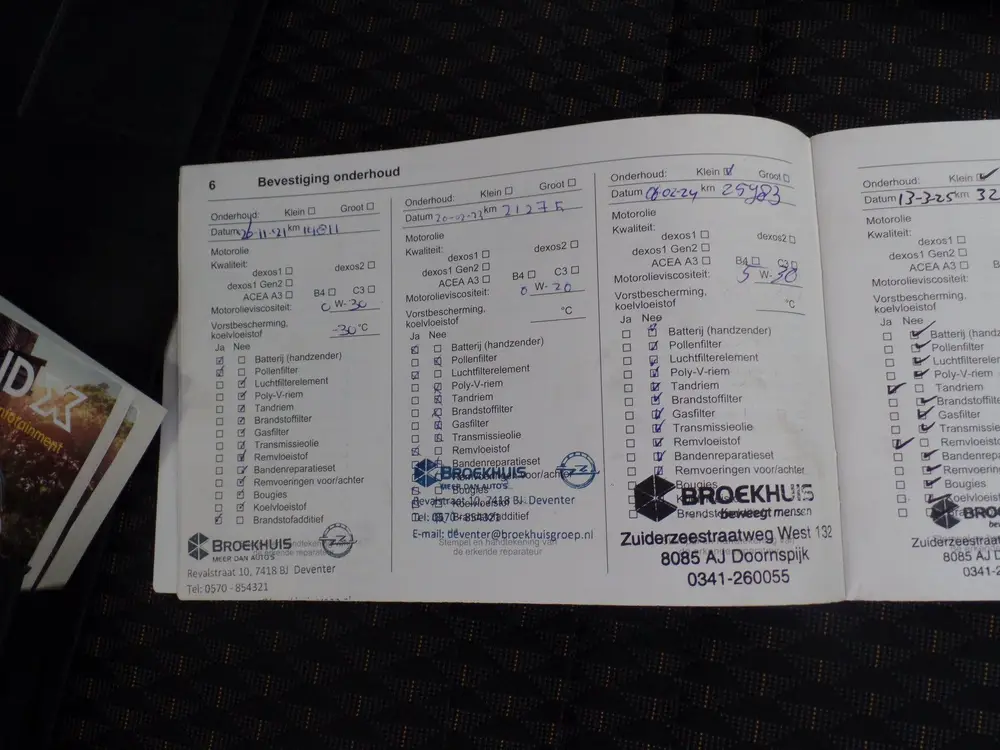 6 Bevestiging onderhoud
Onderhoud: Klein ☐ Groot ☐
Datum 26-11-'21 km
Motorolie
Kwaliteit:
dexos1 ☐ dexos2 ☐
dexos1 Gen2 ☐
ACEA A3 ☐ B4 ☐ C3 ☐
Motorolieviscositeit: 0 W- 30
Vorstbescherming,
koelvloeistof -30 °C
Ja Nee
Batterij (handzender)
Pollenfilter
Luchtfilterelement
Poly-V-riem
Tandriem
Brandstoffilter
Gasfilter
Transmissieolie
Remvloeistof
Bandenreparatieset
Remvoeringen voor/achter
Bougies
Koelvloeistof
Brandstofadditief
BROEKHUIS
MEER DAN AUTO'S
de erkende reparateur
Revalstraat 10, 7418 BJ Deventer
Tel: 0570 - 854321
Onderhoud: Klein ☐ Groot ☐
Datum 20-02-23 km 21275
Motorolie
Kwaliteit:
dexos1 ☐ dexos2 ☐
dexos1 Gen2 ☐
ACEA A3 ☐ B4 ☐ C3 ☐
Motorolieviscositeit: 0 W- 20
Vorstbescherming,
koelvloeistof °C
Ja Nee
Batterij (handzender)
Pollenfilter
Luchtfilterelement
Poly-V-riem
Tandriem
Brandstoffilter
Gasfilter
Transmissieolie
Remvloeistof
Bandenreparatieset
Remvoeringen voor/achter
Bougies
Koelvloeistof
Brandstofadditief
BROEKHUIS
MEER DAN AUTO'S
Revalstraat 10, 7418 BJ Deventer
Tel: 0570 - 854321
E-mail: deventer@broekhuisgroep.nl
Stempel en handtekening van
de erkende reparateur
Onderhoud: Klein ☑ Groot ☐
Datum 08-02-24 km 25983
Motorolie
Kwaliteit:
dexos1 ☐ dexos2 ☐
dexos1 Gen2 ☐
ACEA A3 ☐ B4 ☐ C3 ☐
Motorolieviscositeit: 5 W- 30
Vorstbescherming,
koelvloeistof °C
Ja Nee
Batterij (handzender)
Pollenfilter
Luchtfilterelement
Poly-V-riem
Tandriem
Brandstoffilter
Gasfilter
Transmissieolie
Remvloeistof
Bandenreparatieset
Remvoeringen voor/achter
Bougies
BROEKHUIS
beweegt mensen
Zuiderzeestraatweg West 132
8085 AJ Doornspijk
0341-260055
Onderhoud: Klein ☑
Datum 13-3-25 km 32
Motorolie
Kwaliteit:
dexos1 ☐
dexos1 Gen2 ☐
ACEA A3 ☐
Motorolieviscositeit:
Vorstbescherming,
koelvloeistof
Ja Nee
Batterij (handz
Pollenfilter
Luchtfilterele
Poly-V-riem
Tandriem
Brandstoffilte
Gasfilter
Transmissie
Remvloeisto
Bandenrepa
Remvoering
Bougies
Koelvloeisto
BROE
Zuiderzeestraat
8085 AJ D
0341-2
infotainment